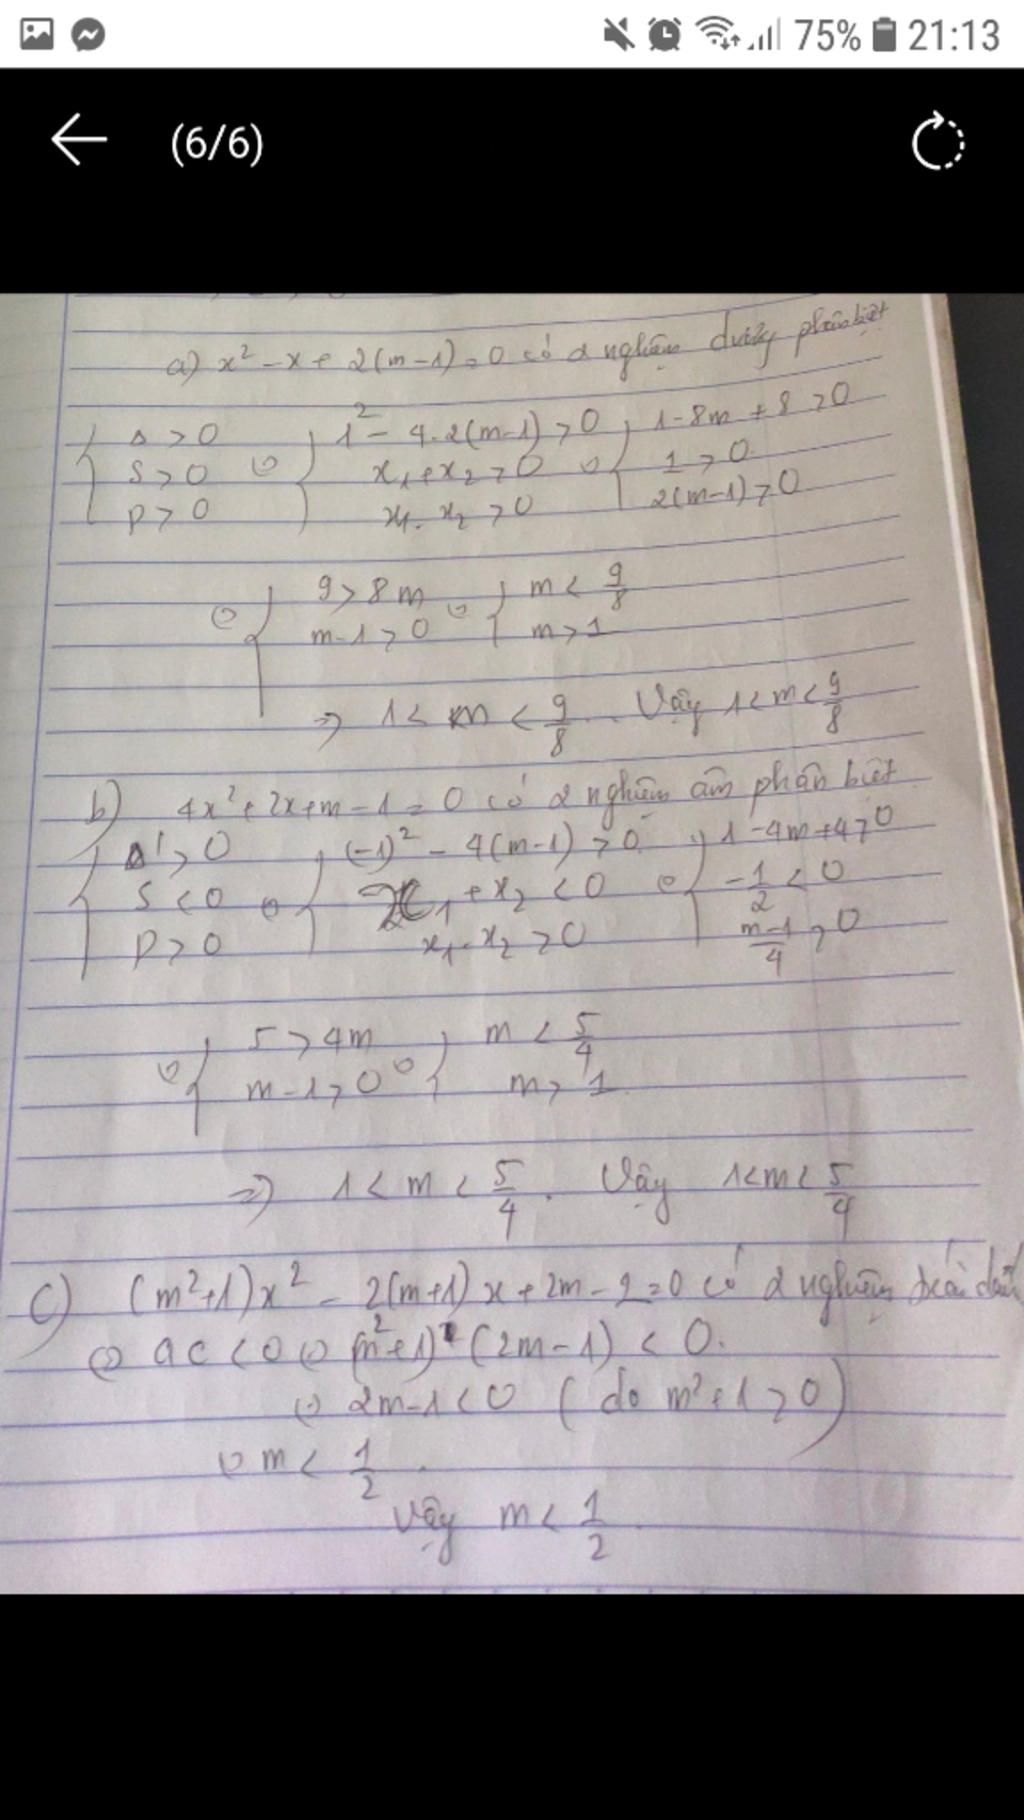 75% 21:13
(6/6)
a) x² - x + 2(m-1) = 0 có 2 nghiệm dương phân biệt
{ Δ > 0 { 1² - 4.2(m-1) > 0 { 1-8m+8 > 0
S > 0 ⇔ x₁+x₂ > 0 ⇔ 1 > 0
P > 0 x₁.x₂ > 0 2(m-1) > 0
⇔ { 9 > 8m ⇔ { m < 9/8
m-1 > 0 m > 1
⇒ 1 < m < 9/8. Vậy 1 < m < 9/8
b) 4x² + 2x + m - 1 = 0 có 2 nghiệm âm phân biệt
{ Δ' > 0 { (-1)² - 4(m-1) > 0 { 1-4m+4 > 0
S < 0 ⇔ x₁+x₂ < 0 ⇔ -1/2 < 0
P > 0 x₁.x₂ > 0 m-1/4 > 0
⇔ { 5 > 4m ⇔ { m < 5/4
m-1 > 0 m > 1
⇒ 1 < m < 5/4. Vậy 1 < m < 5/4
c) (m²+1)x² - 2(m+1)x + 2m - 2 = 0 có 2 nghiệm trái dấu
⇔ ac < 0 ⇔ (m²+1)(2m-1) < 0.
⇔ 2m-1 < 0 (do m²+1 > 0)
⇔ m < 1/2.
Vậy m < 1/2